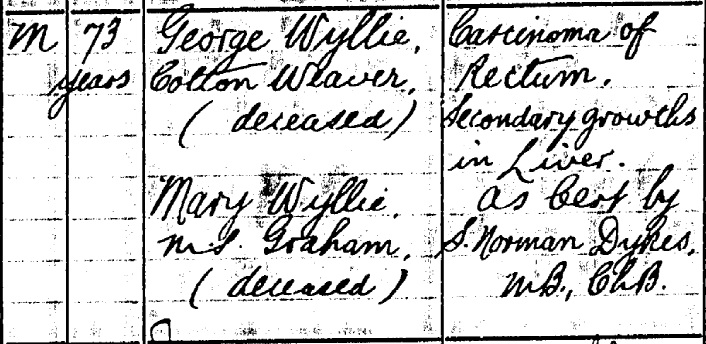 M 73
years
George Wyllie,
Cotton Weaver,
(deceased)
Mary Wyllie,
m.s. Graham,
(deceased)
Carcinoma of
Rectum.
Secondary growths
in Liver.
as Cert by
S. Norman Dykes,
M.B., Ch.B.